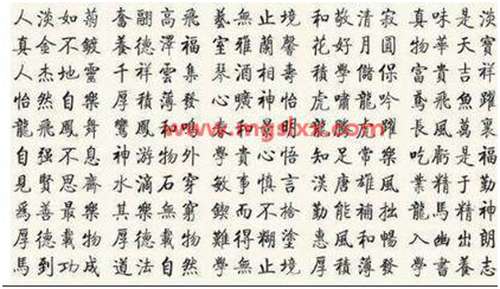 人淡如菊奮翮高飛藝無止境和敬清寂真味是淡
真金不鍍養德澤福室雅蘭馨花好月圓物華天寶
人杰地靈千祥雲集琴酒相壽積學儲富貴吉祥
怡然自樂厚積薄發心曠神怡虎嘯龍吟鳶飛魚躍
龍飛鳳舞鸞鳳和鳴躍長風萬里
www.mgslxx.com
自强不息神游物外學貴心悟知足常樂吃虧是福
見賢思齋水滴石穿敏事慎言漢唐雄風業精于勤
爲善最樂其樂無窮鍥而不捨勤能補拙龍馬精神
厚德載物厚德載物難得糊塗惠風和暢入幽出朗
馬到功成道法自然學無止境厚積薄發學書養志